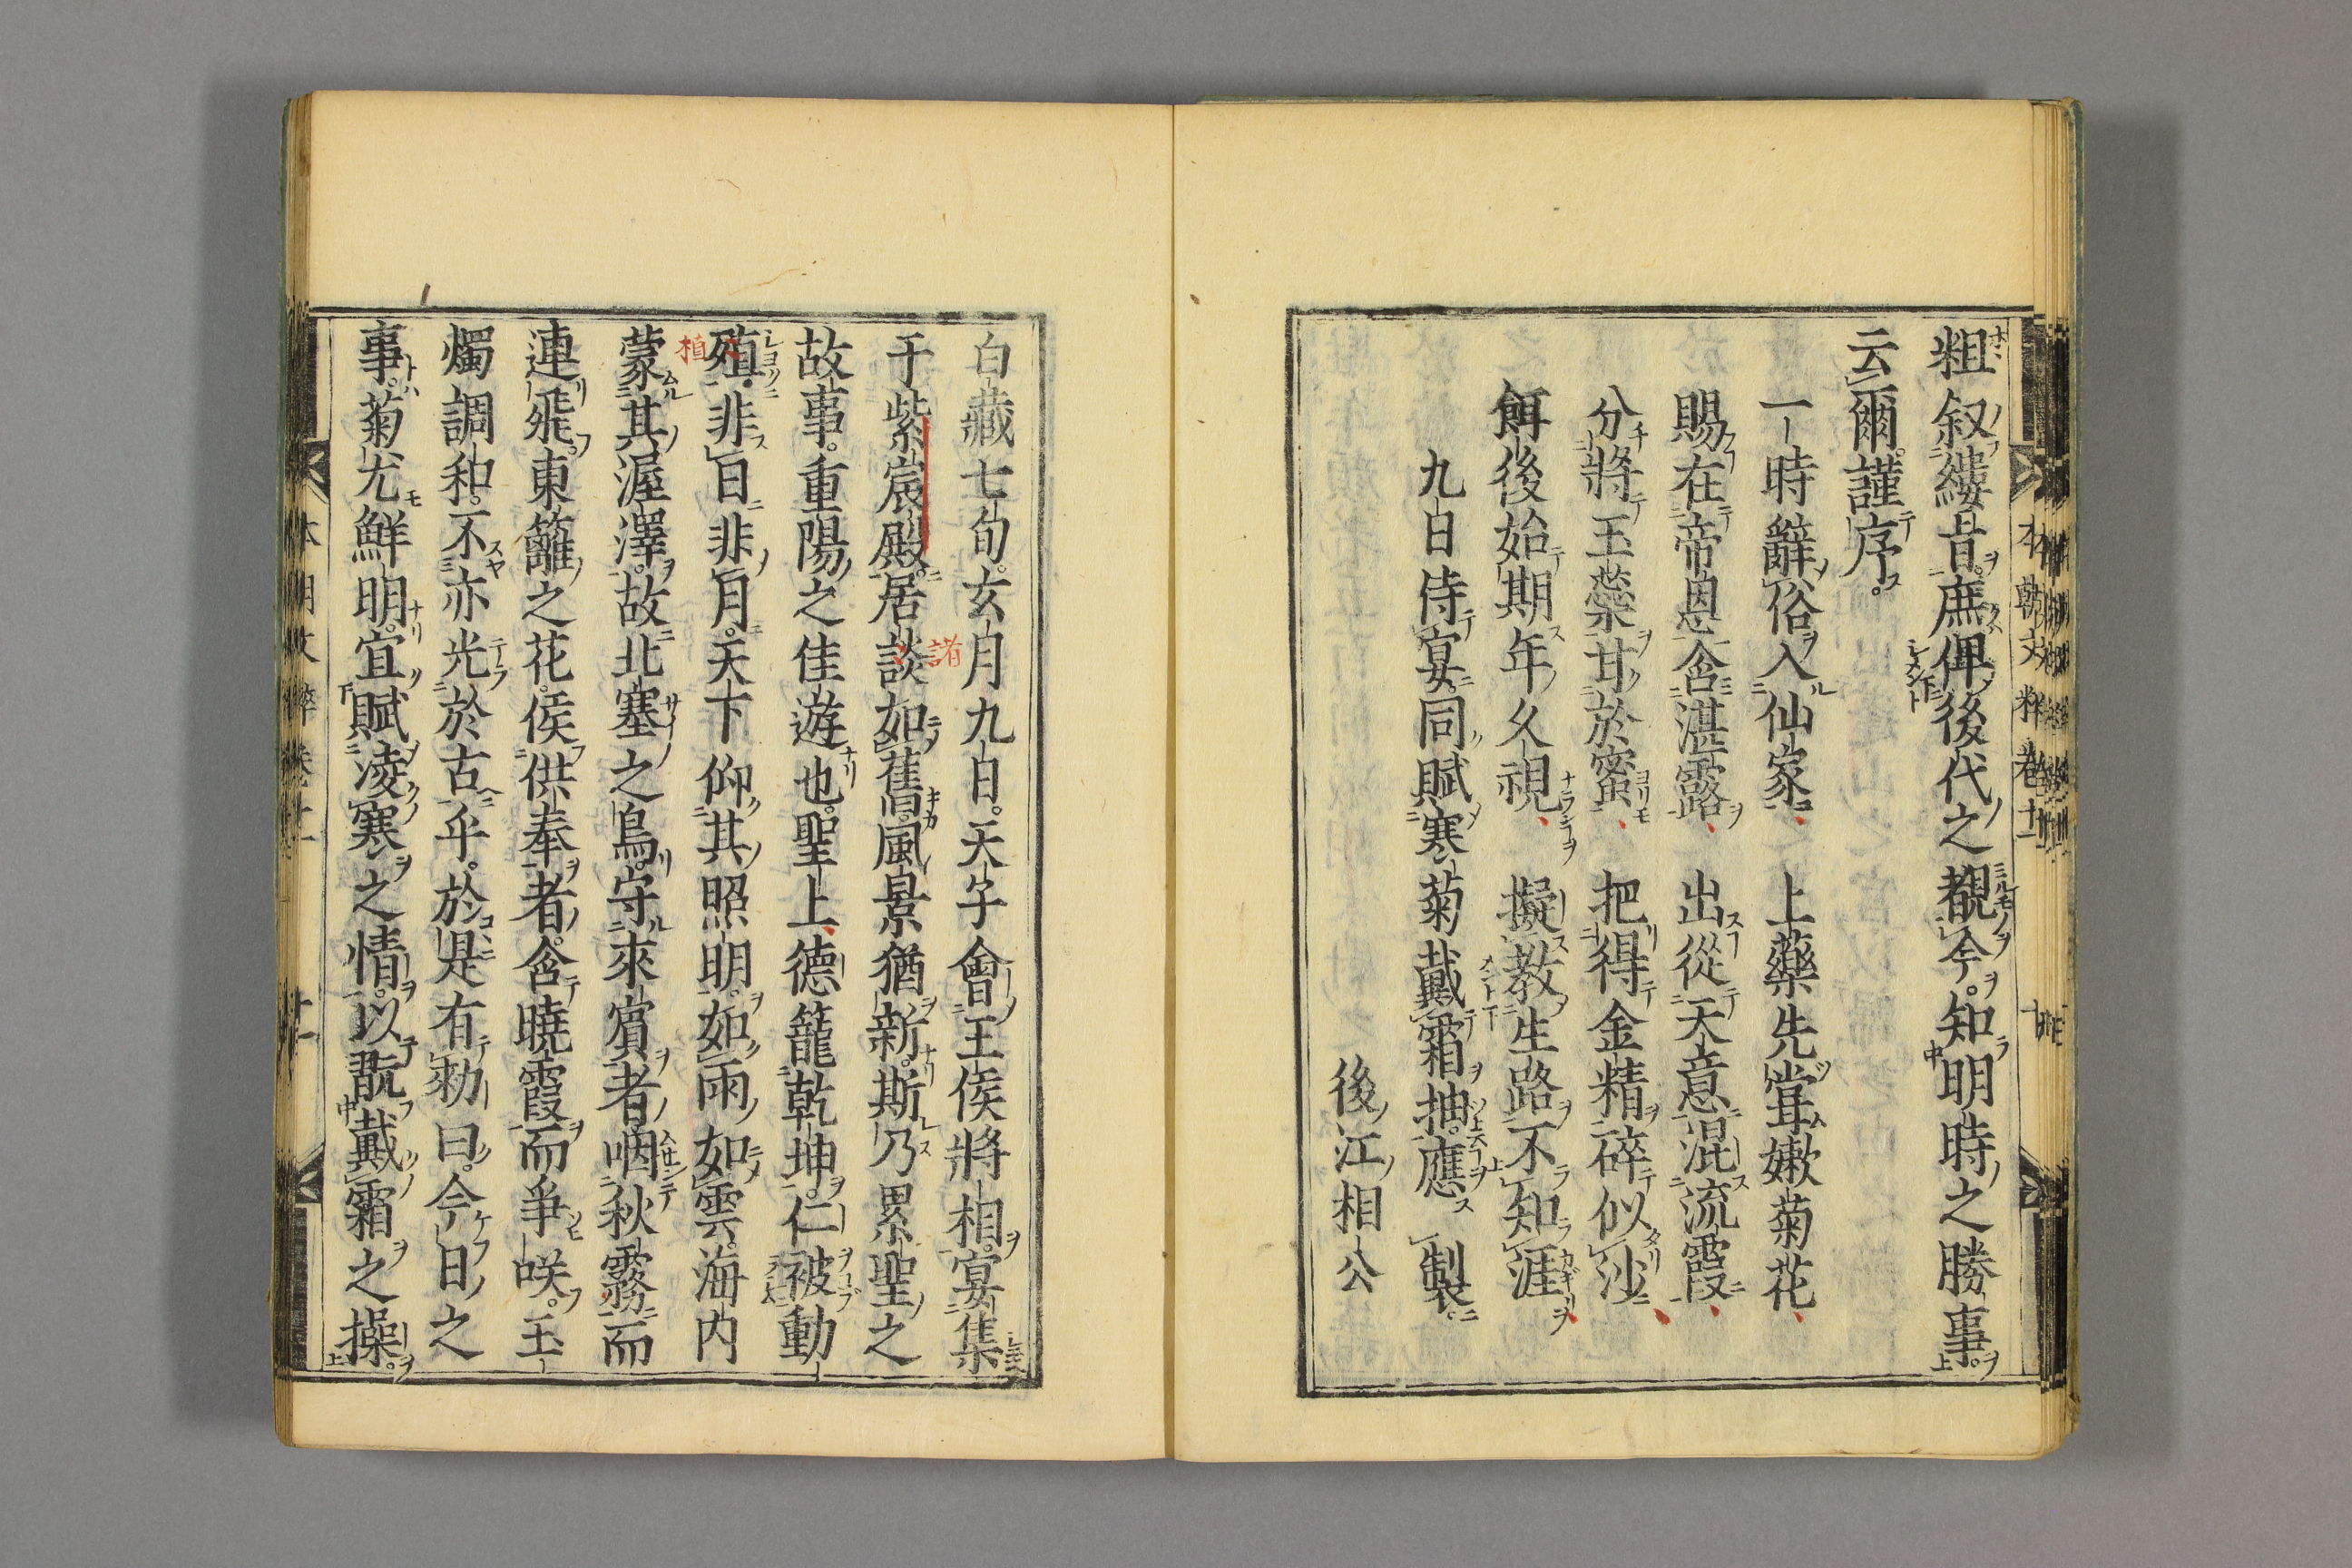 粗叙縷旨。庶俾後代之覩今。知明時之勝事。
云爾。謹序。
一時辭俗入仙家 上藥先甞嫩菊花
賜在帝恩含湛露 出從天意混流霞
分將玉蘂甘於蜜 把得金精碎似沙
餌後始期年久視 擬教生路不知涯
九日侍宴。同賦寒菊戴霜抽。應製。
後江相公
白藏七旬。玄月九日。天子會王侯將相。宴集
于紫宸殿。居談如舊。風景猶新。斯乃累聖之
諸
故事。重陽之佳遊也。聖上德籠乾坤。仁被動
殖。非日非月。天下仰其照明。如雨如雲。海内
植
蒙其渥澤。故北塞之鳥。守來賓者。咽秋霧而
連飛。東籬之花。俟供奉者。含曉霞而爭咲。玉
燭調和。不亦光於古乎。於是有勑曰。今日之
事。菊尤鮮明。宜賦凌寒之情。以翫戴霜之操。
本朝文粹卷十一